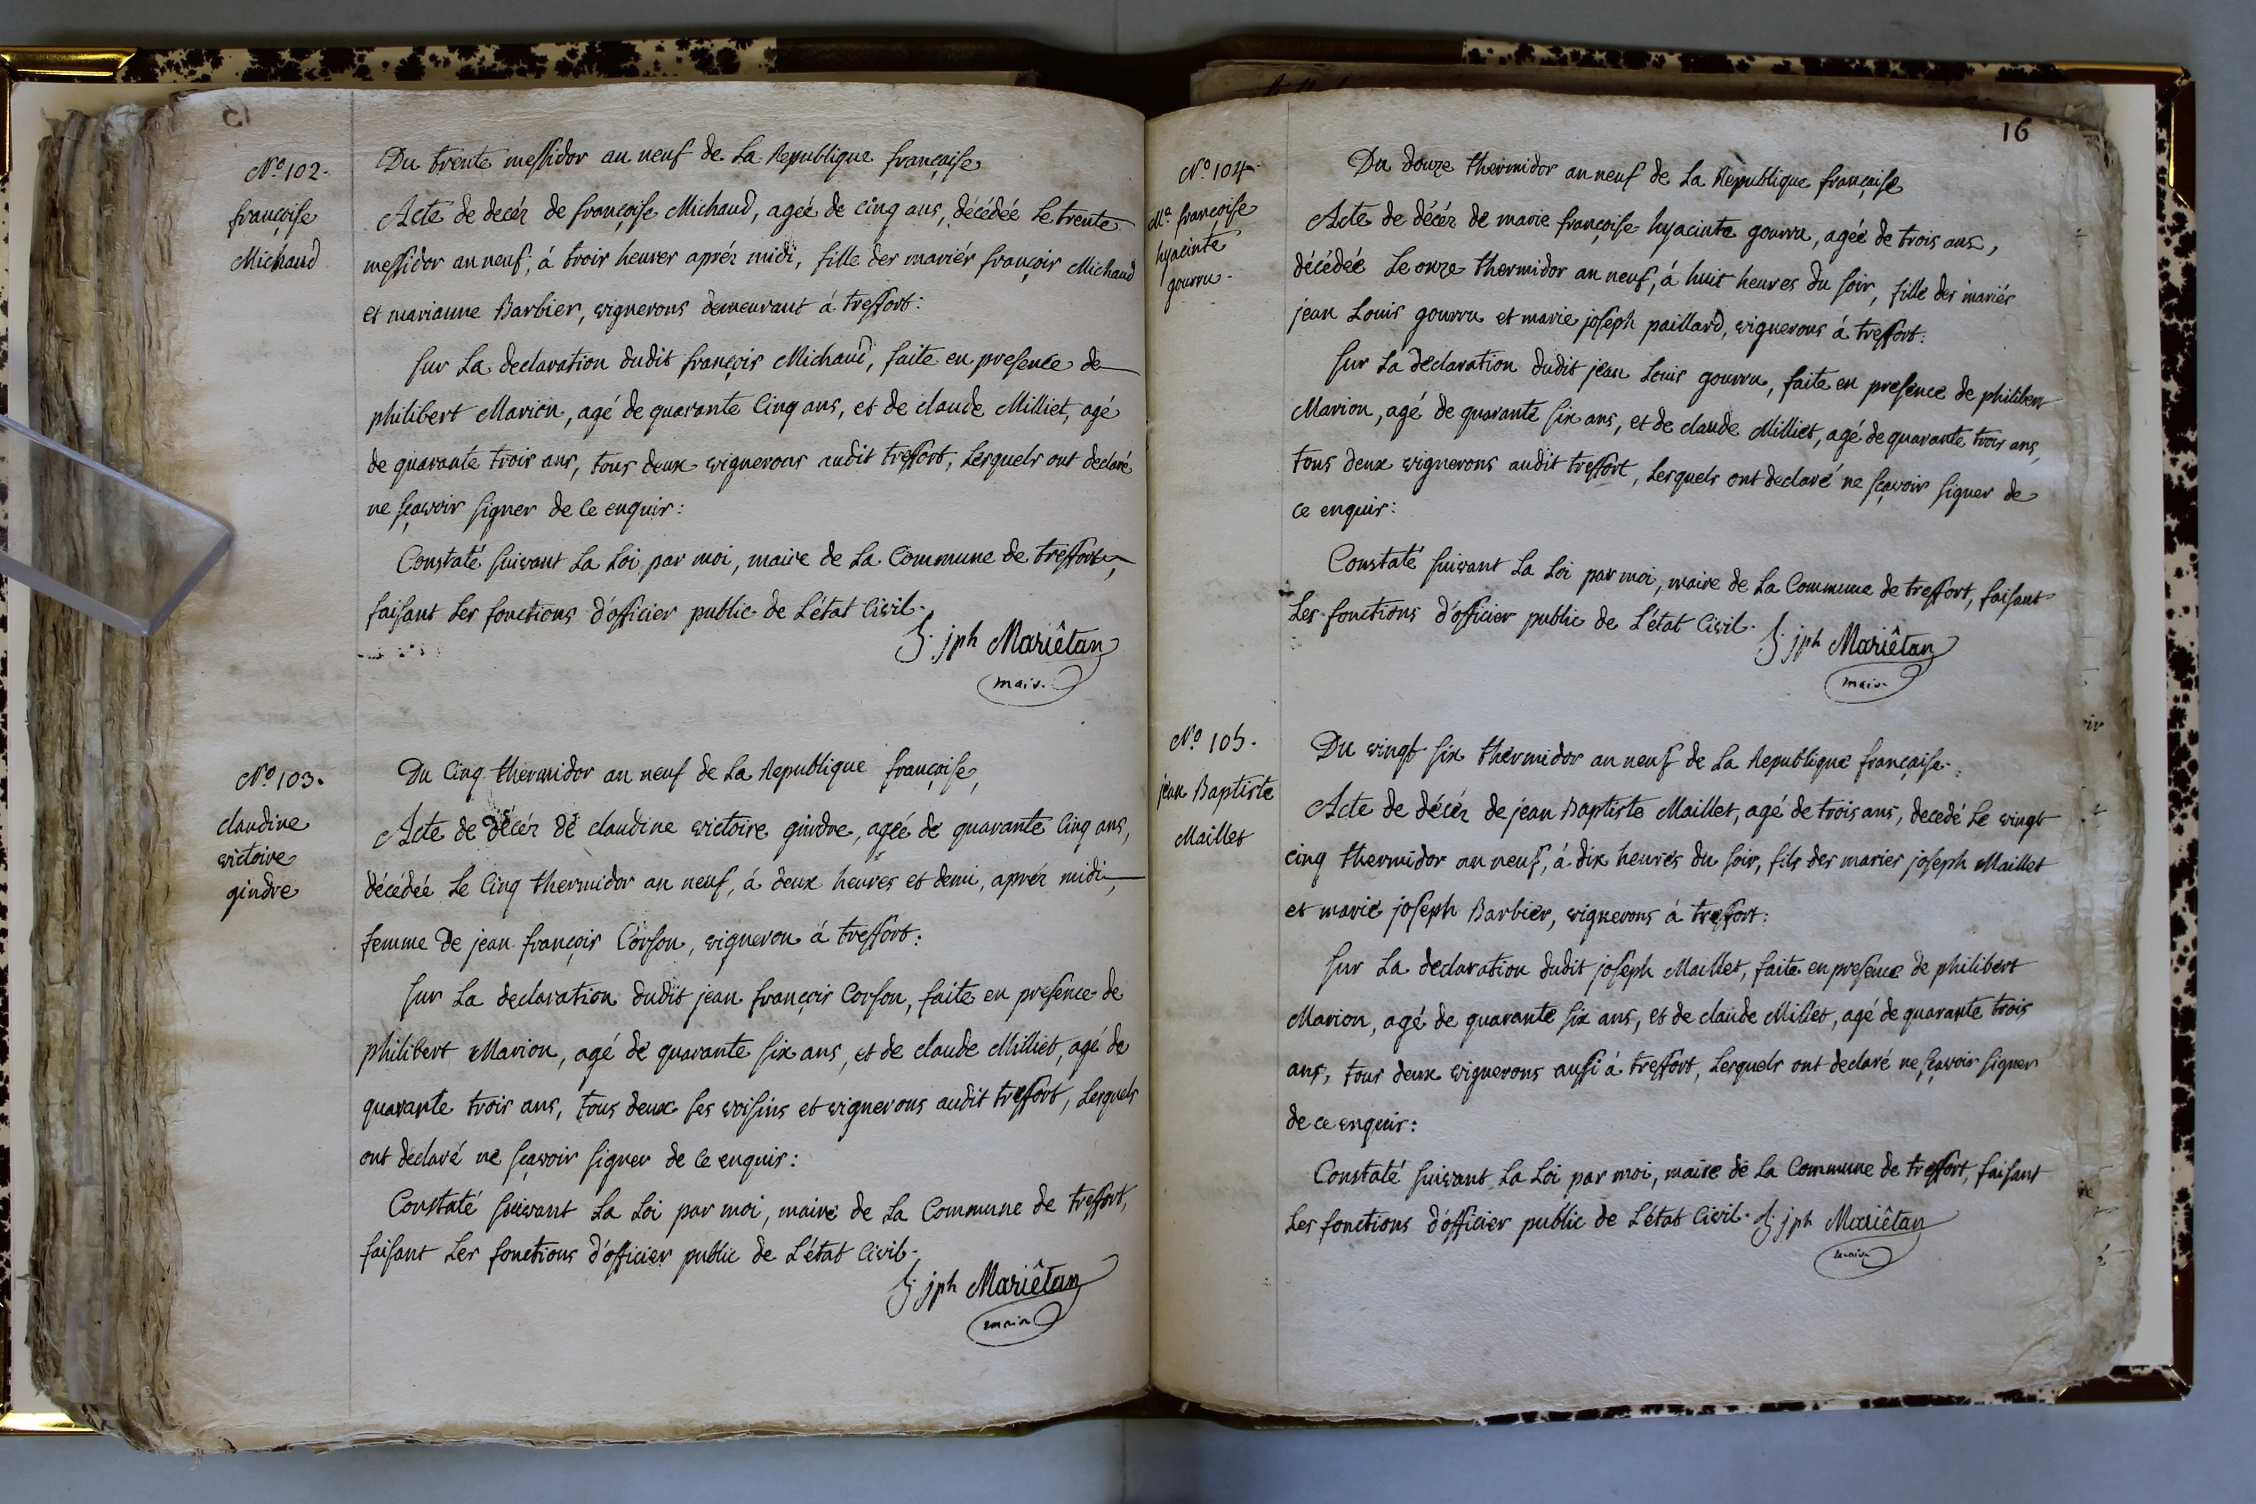 N.o 102.
françoise
Michaud
Du trente messidor an neuf de La Republique française,
Acte de decéz de françoise Michaud, ageé de cinq ans, décédée Le trente
messidor an neuf, á trois heures aprés midi, fille des mariés françois Michaud
et marianne Barbier, vignerons demeurant á treffort:
sur La declaration dudit françois Michaud, faite en presence de
philibert Marion, agé de quarante Cinq ans, et de claude Milliet, agé
de quarante trois ans, tous deux vignerons audit treffort, Lesquels ont declaré
ne sçavoir signer de Ce enquis:
Constaté suivant La Loi par moi, maire de La Commune de treffort,
faisant Les fonctions d'officier public de L'état Civil.
jph Mariêtan
maire
N.o 103.
claudine
victoire
gindre
Du Cinq thermidor an neuf de La Republique française,
Acte de décéz de claudine victoire gindre, agée de quarante Cinq ans,
décédée Le Cinq thermidor an neuf, á deux heures et demi, aprés midi,
femme de jean françois Corson, vigneron á treffort:
sur La declaration dudit jean françois Corson, faite en presence de
philibert Marion, agé de quarante six ans, et de claude Milliet, agé de
quarante trois ans, tous deux ses voisins et vignerons audit treffort, Lesquels
ont declaré ne sçavoir signer de Ce enquis:
Constaté suivant La Loi par moi, maire de La Commune de treffort,
faisant Les fonctions d'officier public de L'état Civil.
jph Mariêtan
maire
16
N.o 104.
M.e françoise
hyacinte
gourru.
Du douze thermidor an neuf de La Republique française
Acte de décéz de marie françoise hyacinte gourru, agée de trois ans,
décédée Le onze thermidor an neuf, á huit heures du soir, fille des mariés
jean Louis gourru et marie joseph paillard, vignerons á treffort:
sur La declaration dudit jean Louis gourru, faite en presence de philibert
Marion, agé de quarante six ans, et de claude Milliet, agé de quarante trois ans,
tous deux vignerons audit treffort, Lesquels ont declaré ne sçavoir signer de
ce enquis:
Constaté suivant La Loi par moi, maire de La Commune de treffort, faisant
Les fonctions d'officier public de L'état Civil.
jph Mariêtan
maire
N.o 105.
jean Baptiste
Maillet
Du vingt six thermidor an neuf de La Republique française.
Acte de décéz de jean Baptiste Maillet, agé de trois ans, decedé Le vingt
cinq thermidor an neuf, á dix heures du soir, fils des mariés joseph Maillet
et marie joseph Barbier, vignerons á treffort:
sur La declaration dudit joseph Maillet, faite en presence de philibert
Marion, agé de quarante six ans, et de claude Milliet, agé de quarante trois
ans, tous deux vignerons aussi á treffort, Lesquels ont declaré ne sçavoir signer
de ce enquis:
Constaté suivant La Loi par moi, maire de La Commune de treffort, faisant
Les fonctions d'officier public de L'état Civil. jph Mariêtan
maire